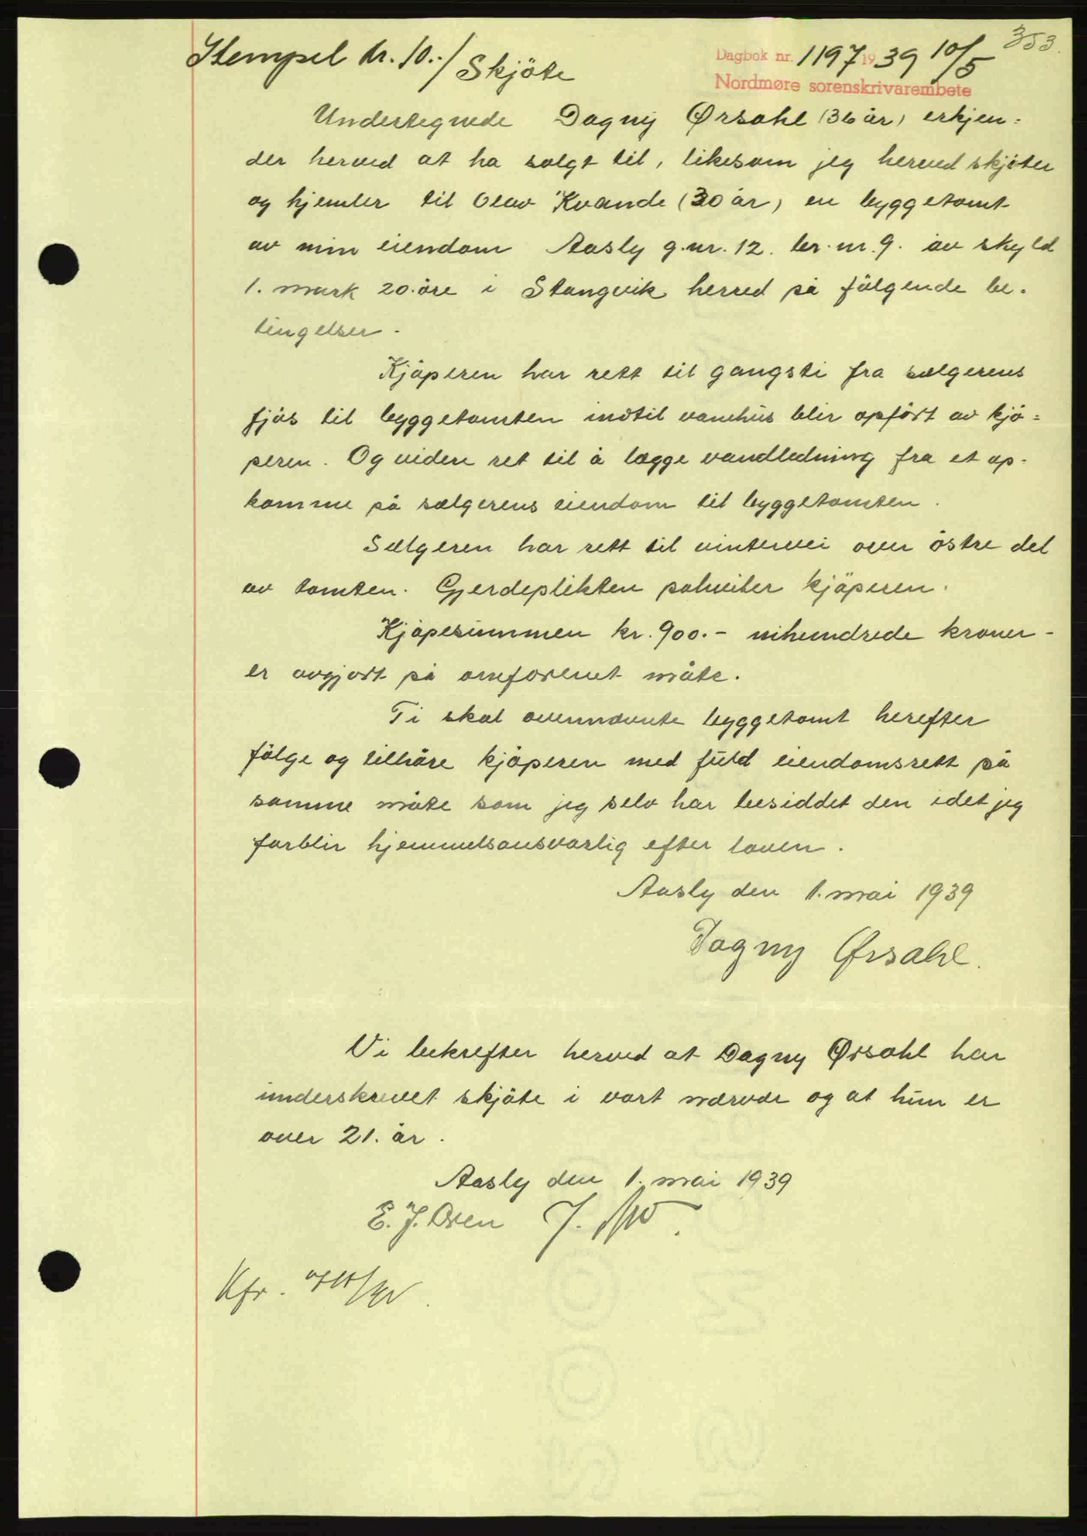 353.
Stempel kr. 10.-/ Skjöte
Dagbok nr. 1197 1939 10/5
Nordmøre sorenskrivarembete
Undertegnede Dagny Ørsahl (36 år) erkjen-
der herved at ha solgt til, likesom jeg herved skjöter
og hjemler til Olav Kvande (30 år) en byggetomt
av min eiendom Aasly g.nr. 12. br. nr. 9. av skyld
1. mark 20. öre i Stangvik herred på fölgende be-
tingelser.
Kjöperen har rett til gangsti fra sælgerens
fjös til byggetomten indtil vaanhus blir opfört av kjö-
peren. Og videre ret til å lægge vandledning fra et op-
komme på sælgerens eiendom til byggetomten.
Sælgeren har rett til vintervei over östre del
av tomten. Gjerdeplikten påhviler kjöperen.
Kjöpesummen kr. 900.- nihundrede kroner -
er avgjort på omforenet måte.
Ti skal ovennævnte byggetomt herefter
fölge og tilhöre kjöperen med fuld eiendomsrett på
samme måte som jeg selv har besiddet den idet jeg
forblir hjemmelsansvarlig efter loven.
Aasly den 1. mai 1939
Dagny Ørsahl.
Vi bekrefter herved at Dagny Ørsahl har
underskrevet skjöte i vort nærvær og at hun er
over 21. år.
Aasly den 1. mai 1939
E. J. Øren J.
Kfr.